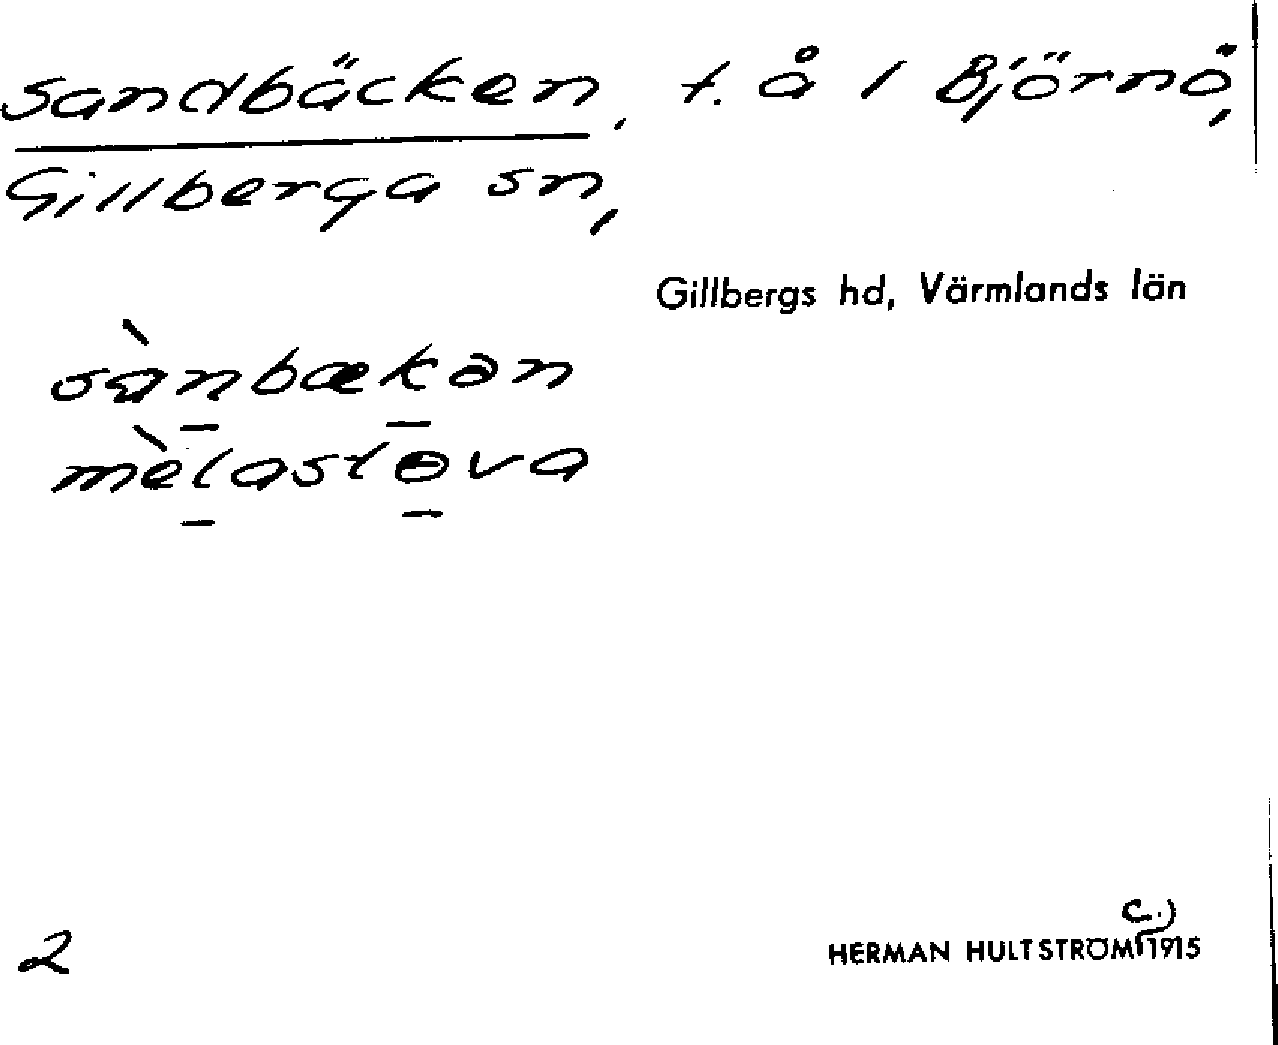 Sandbäcken, t. å i Björnö,
Gillberga sn,
Gillbergs hd, Värmlands län
sànbækən
mèlastɵva
2
HERMAN HULTSTRÖM (c.) 1915